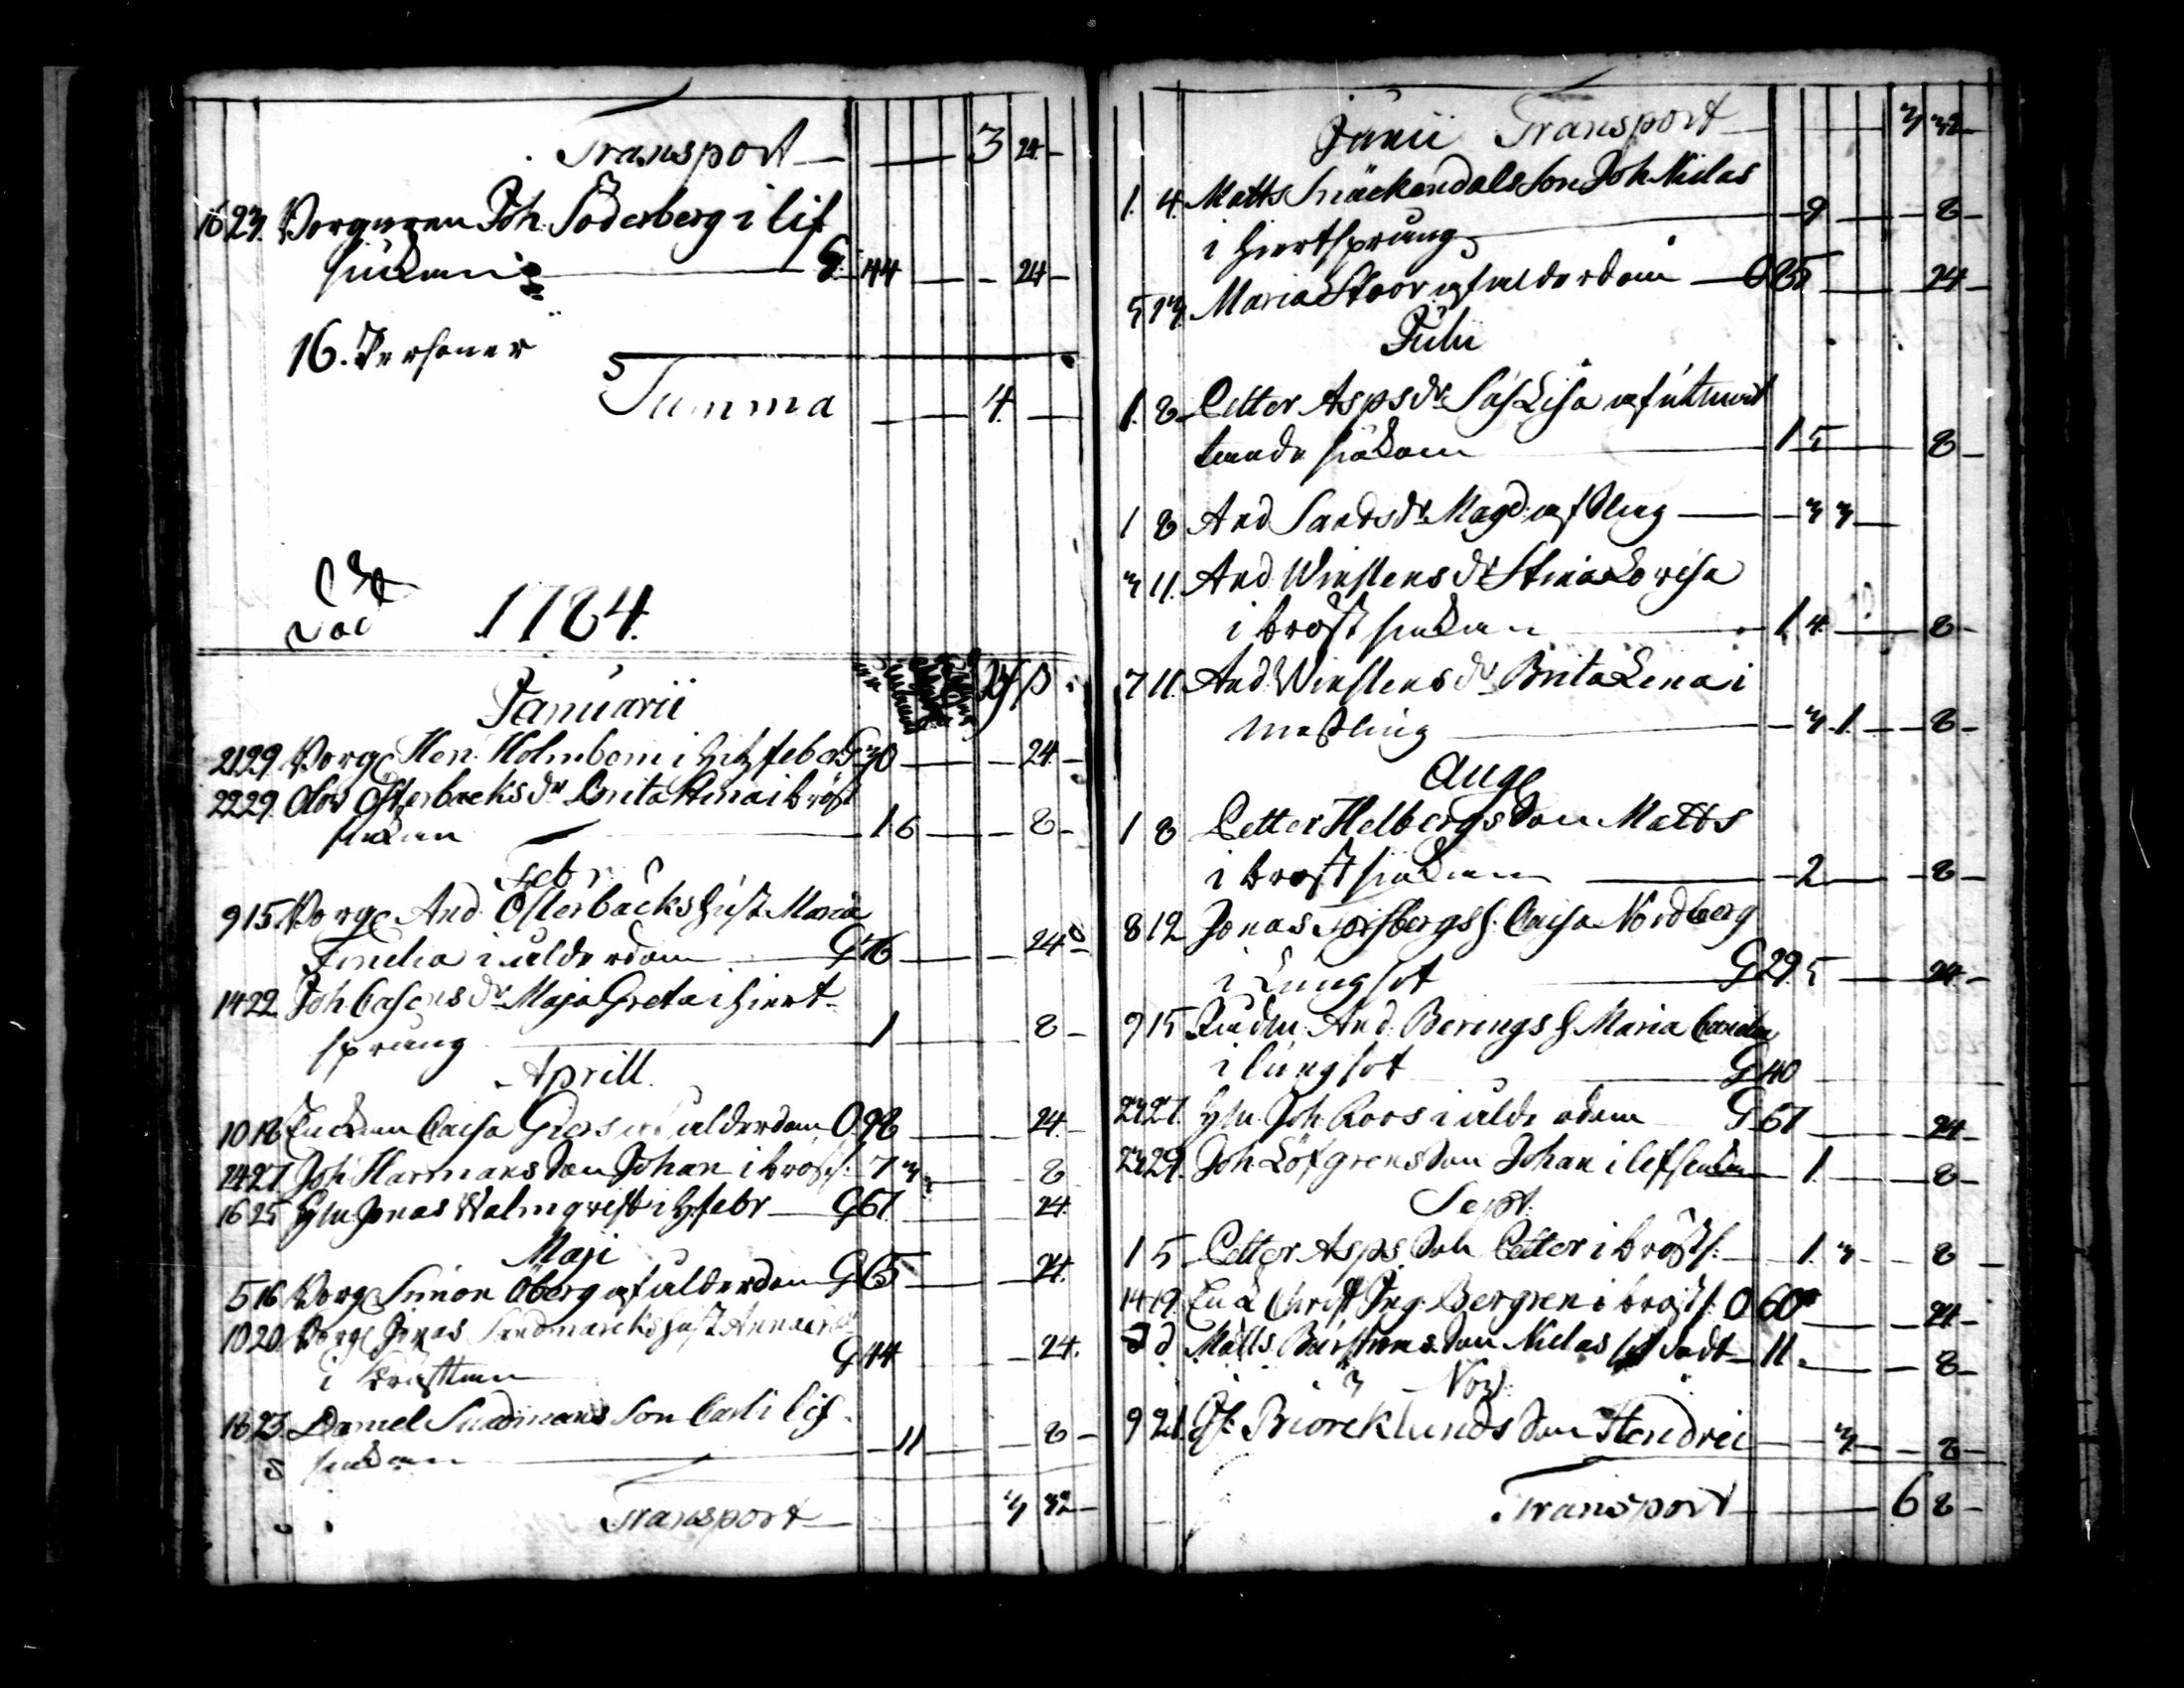 Transport — 3 24 –
16 23. Borgaren Joh. Söderberg i lif
siukan G. 44 — 24 –
16. Personer
Summa — 4. —
1784.
Januarii
21 29. Borg. Hen. Holmbom i hets feber G 30 — 24 –
22 29. Olov Österbacks dr Brita Stina i bröst
siukan 1 6 — 8 –
Febr.
9 15 Borg. And. Österbacks hust. Maria
i ålderdom G 76 — 24 –
14 22. Joh. dr Maja Greta i hiert-
språng 1 — 8 –
Aprill.
10 18 Enckan Caisa Giers af ålderdom O. 98 — 24. –
14 21. Joh. Harmans Son Johan i bröst. 7 3 — 8
16 25 Jonas Walmqvist i h. febr — G 67. — 24.
Maji
5 16 Borg. Simon Öberg af ålderdom G 65 — 24.
10 20. Borg. Jonas Sandmarcks hust.
i G 44 — 24.
18 23. Daniel Sundmans Son Carl i lif-
siukan — 11 — 8 –
Transport — 3 32 –
Junii Transport — 3 32 –
1. 4. Matts Snäckendals Son Joh. Niclas
i hiertsprång — 9 — 8 –
5 13. Maria Stoor af ålderdom — O 85 — 24 –
Julii
1. 8 Petter Asps dr Lisa af
siukdom 1 5 — 8 –
1 8 And. Sands dr Magd. af — 3 3 —
3 11. And. Winstens dr Stina Lovisa
i bröst siukan 1. 4. — 8 –
7 11. And. Winstens dr Brita Lena i
messling — 3. 1. — 8 –
Aug.
1 8 Petter Helbergs Son Matts
i bröst siukan — 2 — 8 –
8 12 Jonas Forsbergs h. Caisa Nordberg
i Lungsot G 29. 5 — 24 –
9 15 And. Berings h. Maria
i lungsot G 40
23 27. Joh. Roos i ålderdom G 67 — 24 –
23 29. Joh. Löfgrens Son Johan i lifsiukan — 1. — 8 –
Sept.
1 5 Petter Asps Son Petter i bröst s. — 1. 3 — 8 –
14 19. Enck. Christ. Ing. Bergren i bröst s. O 60 — 24 –
d d Matts Son Niclas — 11. — 8 –
Nov.
9 21. Biörcklunds Son Hendric — 3 — 8 –
Transport — 6 8 –